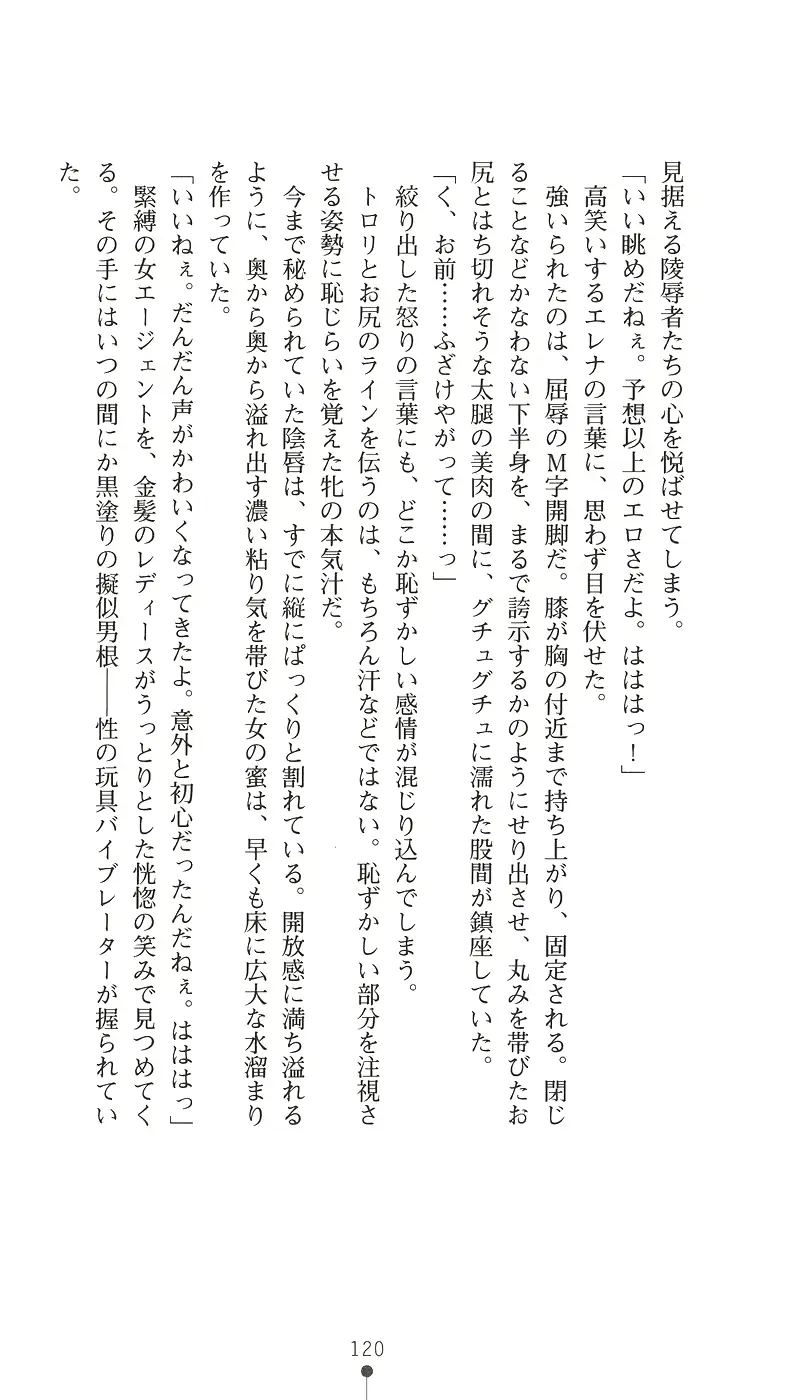 見据える陵辱者たちの心を悦ばせてしまう。
「いい眺めだねぇ。予想以上のエロさだよ。はははっ！」
高笑いするエレナの言葉に、思わず目を伏せた。
強いられたのは、屈辱のＭ字開脚だ。膝が胸の付近まで持ち上がり、固定される。閉じ
ることなどかなわない下半身を、まるで誇示するかのようにせり出させ、丸みを帯びたお
尻とはち切れそうな太腿の美肉の間に、グチュグチュに濡れた股間が鎮座していた。
「く、お前……ふざけやがって……っ」
絞り出した怒りの言葉にも、どこか恥ずかしい感情が混じり込んでしまう。
トロリとお尻のラインを伝うのは、もちろん汗などではない。恥ずかしい部分を注視さ
せる姿勢に恥じらいを覚えた牝の本気汁だ。
今まで秘められていた陰唇は、すでに縦にぱっくりと割れている。開放感に満ち溢れる
ように、奥から奥から溢れ出す濃い粘り気を帯びた女の蜜は、早くも床に広大な水溜まり
を作っていた。
「いいねぇ。だんだん声がかわいくなってきたよ。意外と初心だったんだねぇ。はははっ」
緊縛の女エージェントを、金髪のレディースがうっとりとした恍惚の笑みで見つめてく
る。その手にはいつの間にか黒塗りの擬似男根――性の玩具バイブレーターが握られてい
た。
120